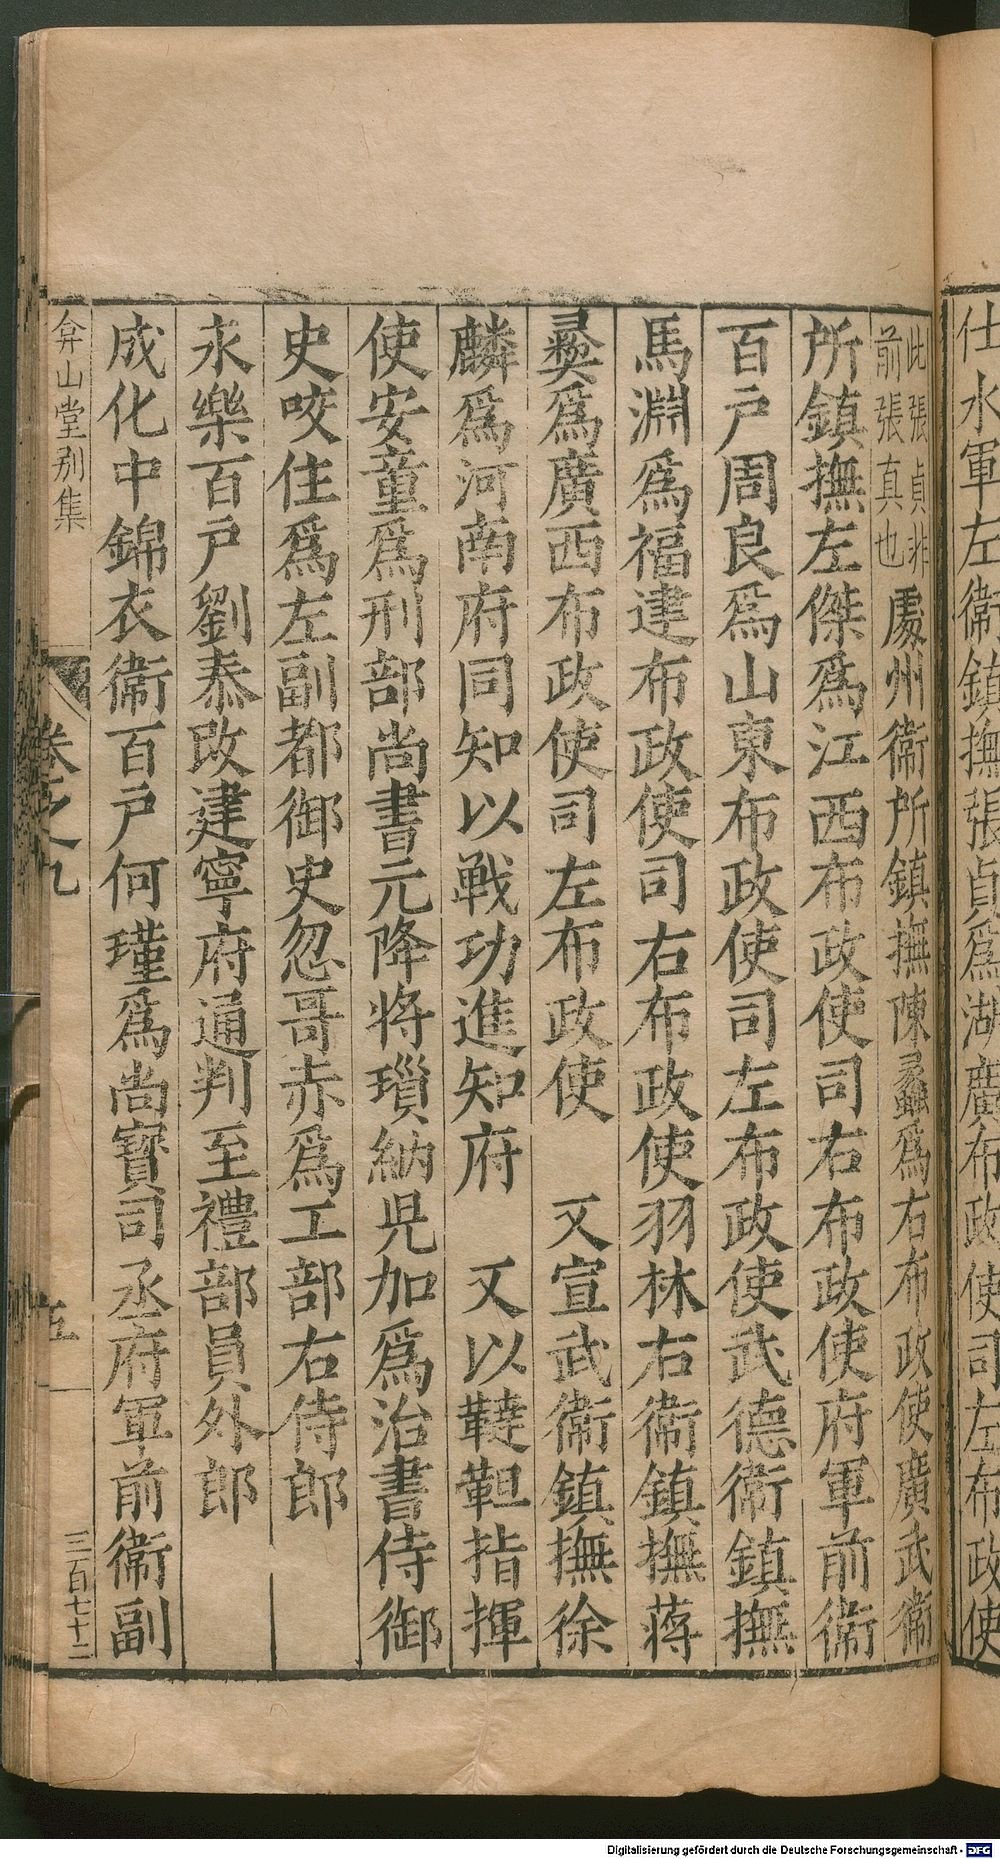 仕水軍左衛鎮撫張貞爲湖廣布政使司左布政使
此張貞非
前張真也
處州衛所鎮撫陳蠡爲右布政使廣武衛
所鎮撫左傑爲江西布政使司右布政使府軍前衛
百戸周良爲山東布政使司左布政使武德衛鎮撫
馬淵爲福建布政使司右布政使羽林右衛鎮撫蒋
彛爲廣西布政使司左布政使　又宣武衛鎮撫徐
麟爲河南府同知以戰功進知府　又以韃靼指揮
使安童爲刑部尚書元降將瑣納児加爲治書侍御
史咬住爲左副都御史忽哥赤爲工部右侍郎
永樂百戸劉泰改建寧府通判至禮部員外郎
成化中錦衣衛百戸何瑾爲尚寳司丞府軍前衛副
弇山堂别集
卷之九
五
三百七十二
Digitalisierung gefördert durch die Deutsche Forschungsgemeinschaft - DFG